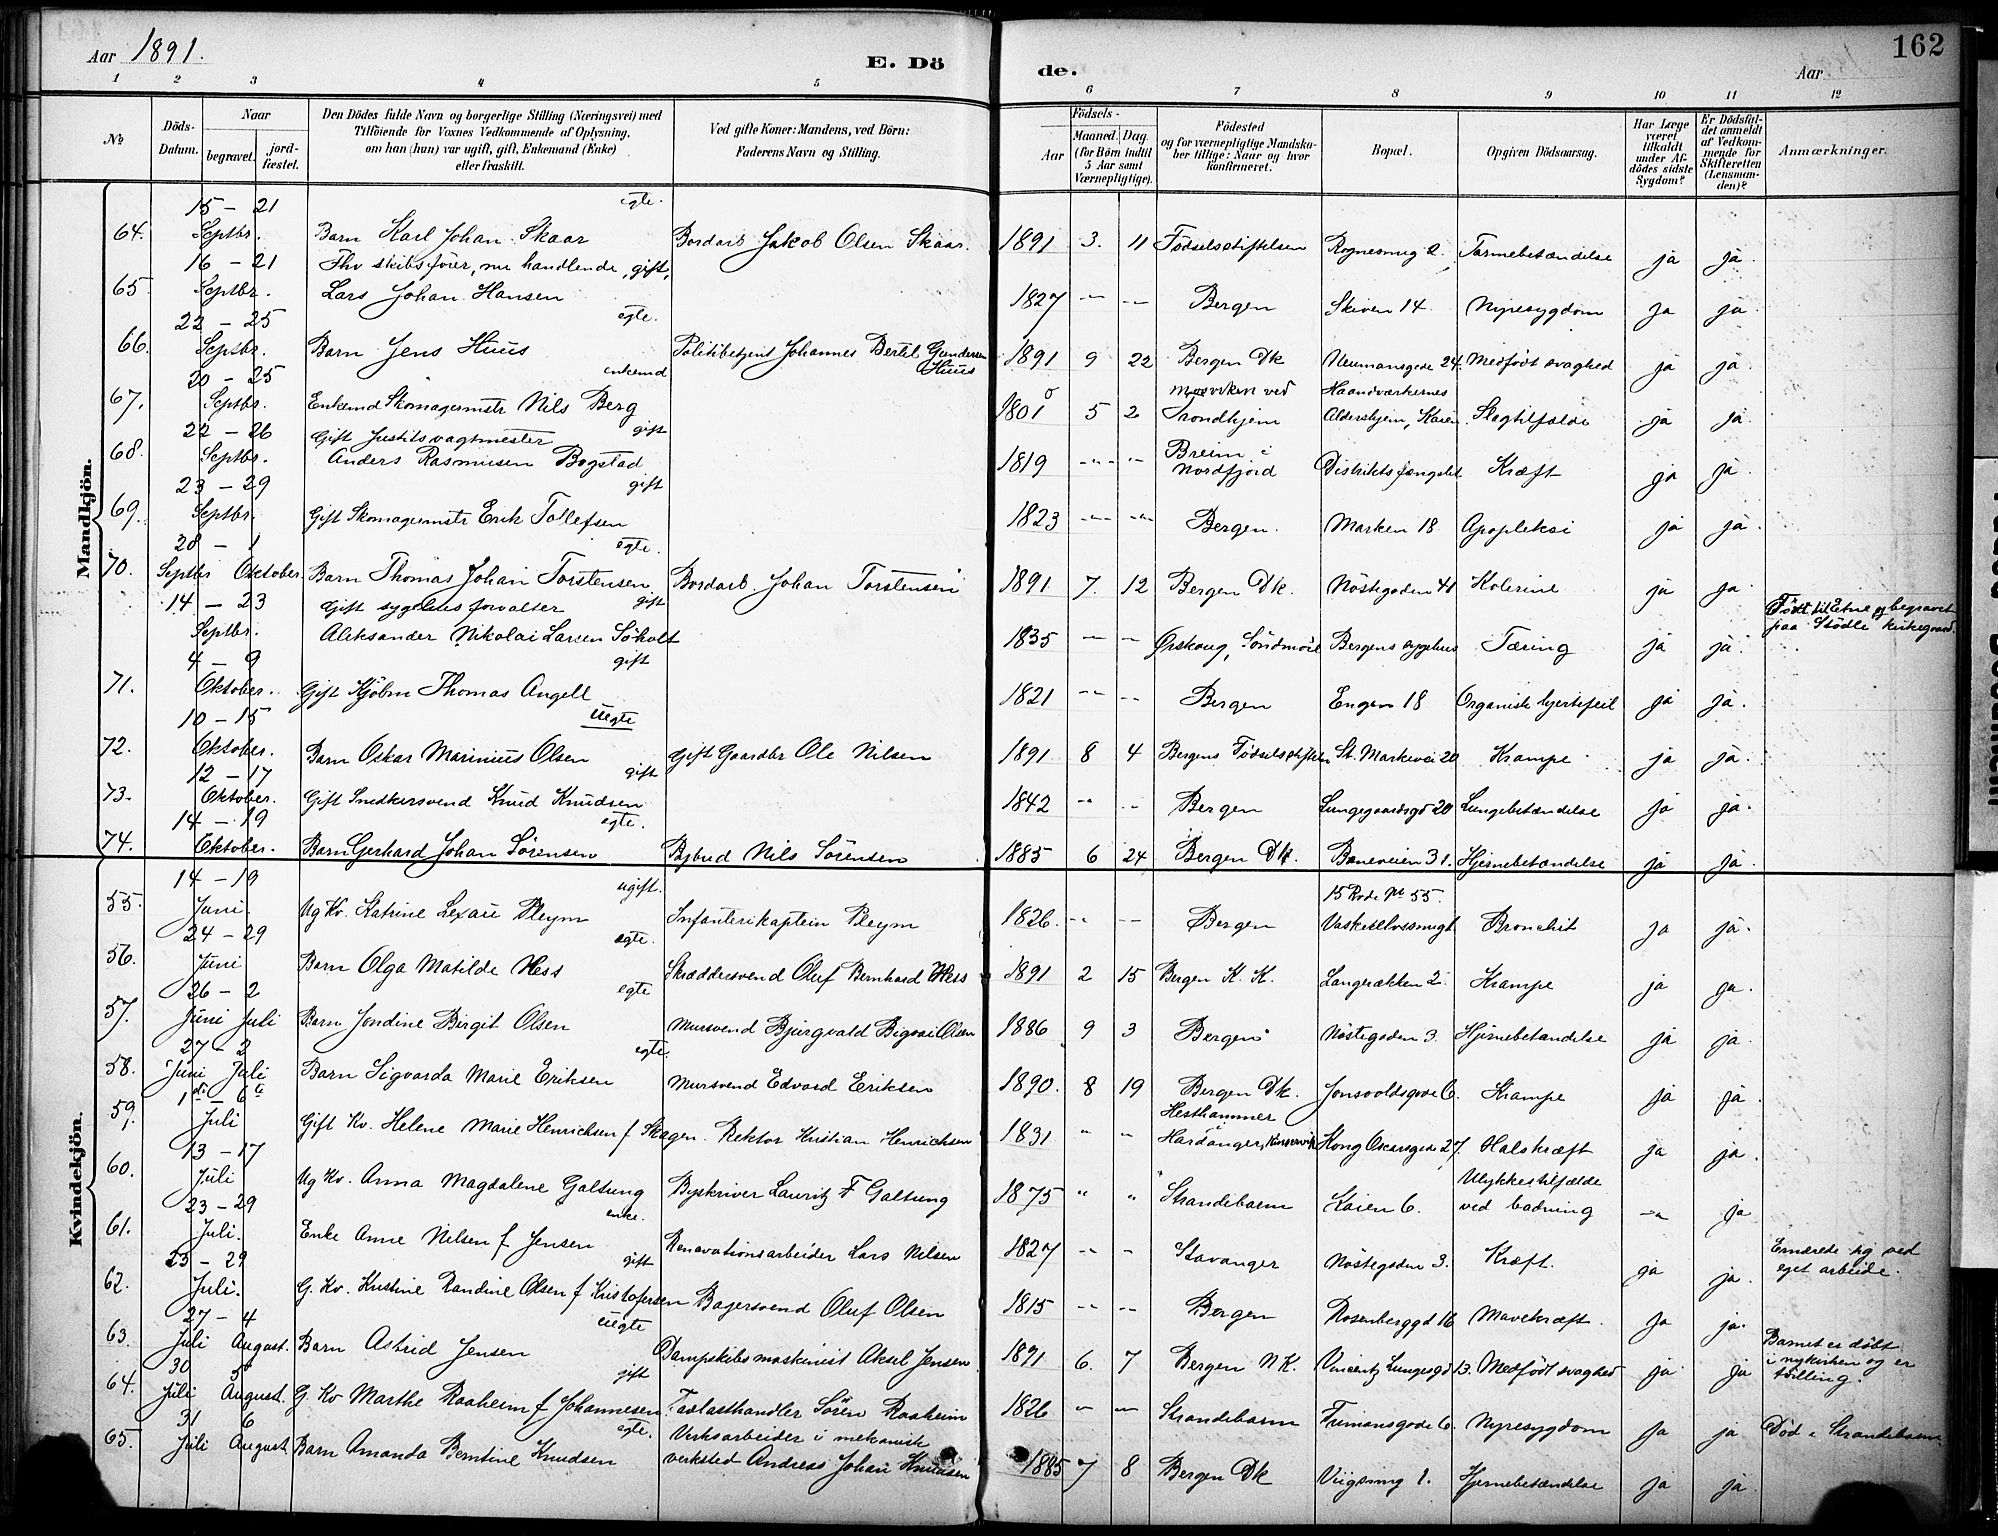 Aar 1891. E. Dö de. Aar 162
1 2 3 4 5 6 7 8 9 10 11 12
No Döds-Datum. Naar begravet. jordfæstet. Den Dödes fulde Navn og borgerlige Stilling (Næringsvei) med Tilföiende for Voxnes Vedkommende af Oplysning, om han (hun) var ugift, gift, Enkemand (Enke) eller fraskilt. Ved gifte Koner: Mandens, ved Börn: Faderens Navn og Stilling. Födsels- Aar Maaned. Dag. (for Börn indtil 5 Aar samt Værnepligtige). Födested og for værnepligtige Mandskaber tillige: Naar og hvor konfirmeret. Bopæl. Opgiven Dödsaarsag. Har Læge været tilkaldt under Afdödes sidste Sygdom? Er Dödsfaldet anmeldt af Vedkommende for Skifteretten (Lensmanden)? Anmærkninger.
Mandkjön.
15 - 21 egte.
64. Septbr. Barn Karl Johan Skaar Bordarb Jakob Olsen Skaar. 1891 3. 11 Födselsstiftelsen Rognesmug 2. Tarmebetændelse ja ja.
16 - 21 Fhv skibsförer, nu handlende, gift,
65. Septbr. Lars Johan Hansen 1827 - - Bergen Skiven 14. Nyresygdom ja ja.
22 - 25 egte.
66. Septbr. Barn Jens Huus Politibetjent Johannes Bertel Gundersen Huus 1891 9 22 Bergen Dk Neumansgade 24. Medfödt svaghed ja ja.
20 - 25 enkemd
67. Septbr. Enkemd Skomagermstr Nils Berg 1801 5 2 Mosviken ved Trondhjem Haandværkernes Aldershjem, Kaien. Slagtilfælde ja ja.
22 - 26 Gift Justitsvagtmester gift
68. Septbr. Anders Rasmusen Bogstad 1819 - - Breim i Nordfjord Distriktsfængslet Kræft ja ja.
23 - 29 gift
69. Septbr. Gift Skomagermstr Erik Tollefsen 1823 - - Bergen. Marken 18 Apopleksi ja ja.
28 - 1 egte.
70. Septbr Oktober. Barn Thomas Johan Torstensen Bordarb. Johan Torstensen 1891 7. 12 Bergen Dk. Nöstegaden 41 Kolerine ja ja
14 - 23 Gift sygehusforvalter gift
Septbr. Aleksander Nikolai Larsen Söholt 1835 - - Örskoug, Söndmöre Bergens sygehus Tæring ja ja. Födt til Etne og begravet paa Stödle kirkegaard.
4 - 9 gift
71. Oktober. Gift Kjöbm Thomas Angell 1821 - - Bergen Engen 18 Organisk hjertefeil ja ja.
10 - 15 uegte
72. Oktober. Barn Oskar Marinius Olsen Gift Gaardbr Ole Nilsen 1891 8 4 Bergens Födselsstiftelse St. Markevei 20 Krampe ja ja.
12 - 17 gift
73. Oktober. Gift Snedkersvend Knud Knudsen 1842 - - Bergen Lungegaardsgd 20 Lungebetændelse ja ja.
14 - 19 egte.
74. Oktober. Barn Gerhard Johan Sörensen Bybud Nils Sörensen 1885 6 24 Bergen Dk. Baneveien 31. Hjernebetændelse ja ja.
Kvindekjön.
14 - 19 ugift.
55. Juni. Ug Kv. Katrine Lexau Pleym Infanterikaptein Pleym 1826. - - Bergen 15 Rode No 55. Bronchit ja ja.
24 - 29 egte.
56. Juni Barn Olga Matilde Hess Skræddersvend Oluf Bernhard Hess 1891 2 15 Bergen K. K. Langerækken 2. Krampe ja ja.
26 - 2 egte
57. Juni Juli Barn Jondine Birgit Olsen Mursvend Olsen 1886 9 3 Bergen Nöstegaden 3. Hjernebetændelse ja ja.
27 - 2 egte.
58. Juni Juli Barn Sigvarda Marie Eriksen Mursvend Edvard Eriksen 1890. 8 19 Bergen Dk. Jonsvoldsgade 6. Krampe ja ja.
1 - 6
59. Juli Gift Kv. Helene Marie Henrichsen f Skagen. Rektor Kristian Henrichsen 1831 " " Hesthammer i Hardanger, Kinservik Kong Oscarsgade 27. Halskræft ja ja.
13 - 17
60. Juli Ug Kv. Anna Magdalene Galtung Byskriver Lauritz F Galtung 1875 " " Strandebarm Kaien 6. Ulykkestilfælde ved badning - ja
23 - 29 enke.
61. Juli. Enke Anne Nilsen f Jensen Renovationsarbeider Lars Nilsen 1827 - - Stavanger Nöstegaden 3. Kræft. ja ja. Ernærede sig ved eget arbeide.
23 - 29 gift
62. Juli. G. Kv. Kristine Randine Olsen f Kristofersen Bagersvend Oluf Olsen 1815 - - Bergen Rosenberggd 16 Mavekræft. ja ja.
27 - 4 uegte
63. Juli August. Barn Astrid Jensen Dampskibsmaskinist Aksel Jensen 1891 6. 7 Bergen N.K. Vincentz Lungesgd 13. Medfödt svaghed ja ja Barnet er döbt i nykirken og er tvilling.
30 5 gift
64. Juli August. G. Kv Marthe Raaheim f Johannesen. Fadlasthandler Sören Raaheim 1826 - - Strandebarm Fimansgade 6. Nyresygdom ja ja Död i Strandebarm.
31 6 egte.
65. Juli August. Barn Amanda Berntine Knudsen Verksarbeider i mekanisk verksted Andreas Johan Knudsen 1885 7 8 Bergen Dk 1. Hjernebetændelse ja ja.